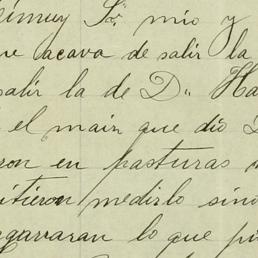 Sr. mío y
acava de salir la
salir la de Dn. Ha
el mair que dió D
ron en pasturas
itieron medirlo sino
garraran lo que